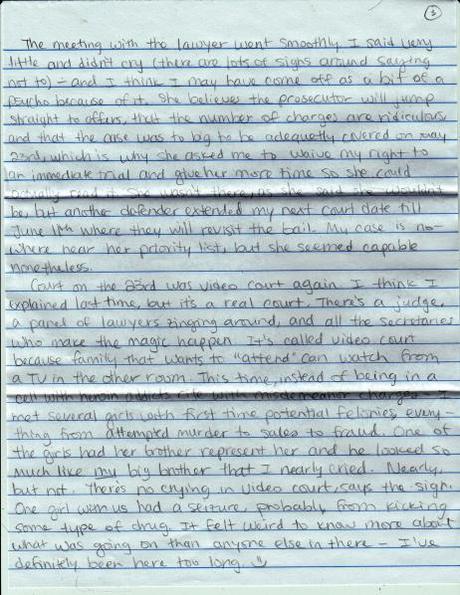 3
The meeting with the lawyer went smoothly. I said very
little and didn't cry (there are lots of signs around saying
not to) - and I think I may have come off as a bit of a
psycho because of it. She believes the prosecutor will jump
straight to offers, that the number of charges are ridiculous
and that the case was to big to be adequetly covered on may
23rd, which is why she asked me to waive my right to
an immediate trial and give her more time so she could
actually read it. She wasn't there, as she said she wouldn't
be, but another defender extended my next court date till
June where they will revisit the bail. My case is no-
where near her priority list, but she seemed capable
nonetheless.
Court on the 23rd was video court again. I think I
explained last time, but it's a real court. There's a judge,
a panel of lawyers zinging around, and all the secretaries
who make the magic happen. It's called video court
because family that wants to "attend" can watch from
a TV in the other room. This time, instead of being in a
cell with heroin addicts with misdemeanor charges - I
met several girls with first time potential felonies, every-
thing from attempted murder to sales to fraud. One of
the girls had her brother represent her and he looked so
much like my big brother that I nearly cried. Nearly,
but not. There's no crying in video court, says the sign.
One girl with us had a seizure, probably from kicking
some type of drug. It felt weird to know more about
what was going on than anyone else in there - I've
definitely been here too long.